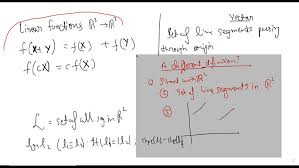 Linear functions ℝ² → ℝ²
f(x+y) = f(x) + f(y)
f(cx) = c f(x)
Vector
Set of line segments passing
through origin
A different definition:
Start with ℝ²
① Set of line segments in ℝ²
②
L = set of all seg in ℝ²